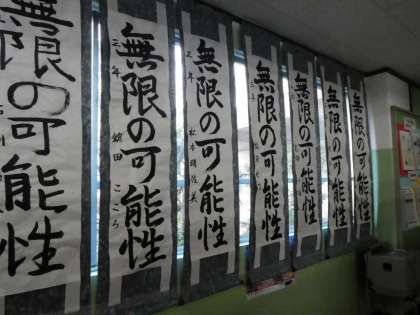 無限の可能性
無限の可能性
三年 舘田 こころ
無限の可能性
三年
無限の可能性
無限の可能性
無限の可能性
無限の可能性